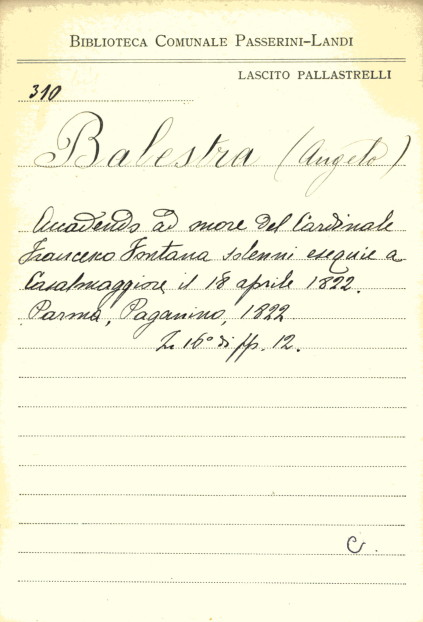 BIBLIOTECA COMUNALE PASSERINI-LANDI
LASCITO PALLASTRELLI
310
Balestra (Angelo)
Accadendo ad onore del Cardinale
Francesco Fontana solenni esequie a
Casalmaggiore il 18 aprile 1822.
Parma, Paganino, 1822
In 16° di pp. 12.
C.